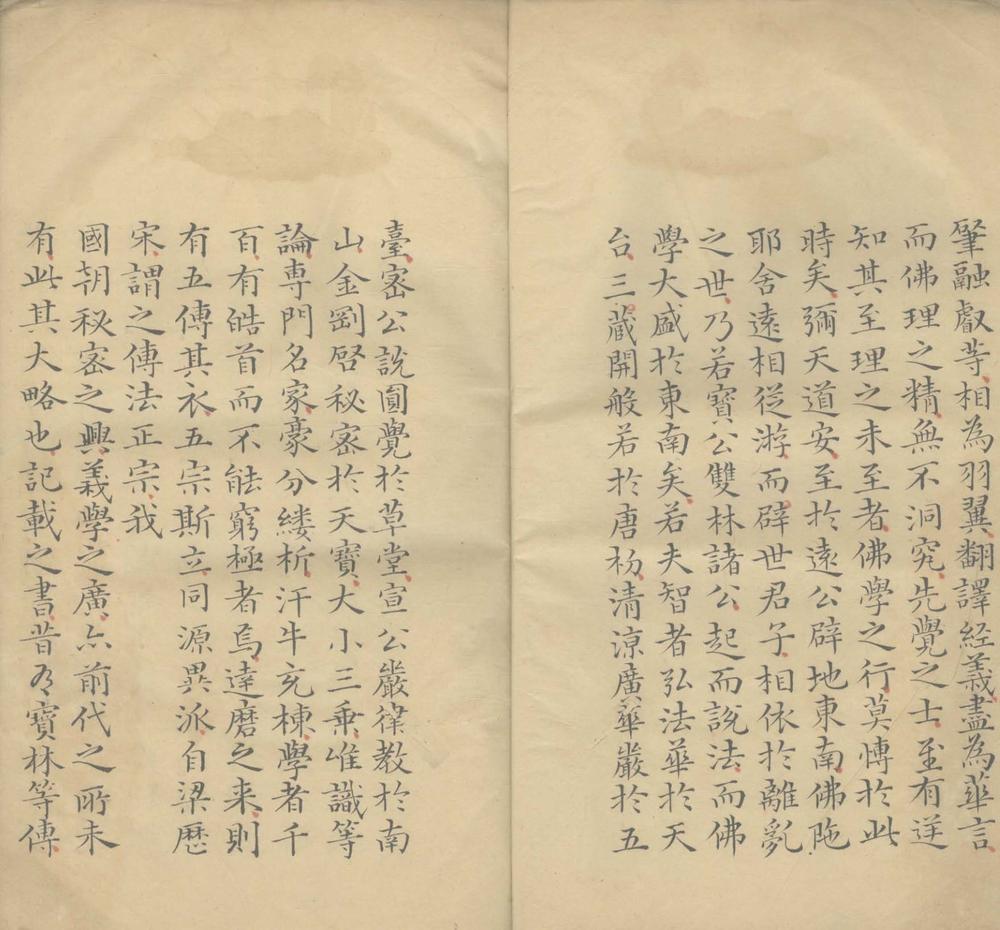 肇融叡䓁相為羽翼翻譯经義盡為華言
而佛理之精無不洞究先覺之士至有逆
知其至理之未至者佛學之行莫愽於此
時矣彌天道安至於遠公辟地東南佛陁
耶舍遠相從游而辟世君子相依於離亂
之世乃若寶公雙林諸公起而説法而佛
學大盛於東南矣若夫智者弘法華於天
台三藏開般若於唐杨清涼廣華嚴於五
臺宻公説圓覺於草堂宣公嚴律教於南
山金剛啓秘宻於天寶大小三乗唯識等
論專門名家豪分縷析汗牛充棟學者千
百有皓首而不能窮極者焉達磨之来則
有五傳其衣五宗斯立同源異派自梁歷
宋謂之傳法正宗我
國朝秘宻之興義學之廣亦前代之所未
有此其大略也記載之書昔有寳林等傳